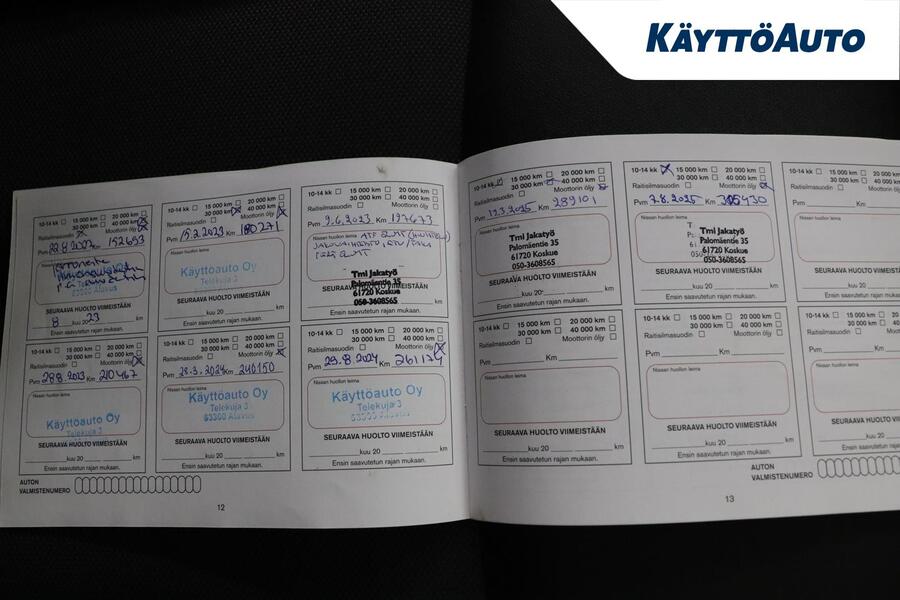 KÄYTTÖAUTO
10-14 kk 15 000 km 20 000 km
30 000 km 40 000 km
Raitisilmasuodin Moottorin öljy
Pvm Km 152653
Nissan huollon leima
SEURAAVA HUOLTO VIIMEISTÄÄN
8 kuu 20 23
Ensin saavutetun rajan mukaan.
10-14 kk 15 000 km 20 000 km
30 000 km 40 000 km
Raitisilmasuodin Moottorin öljy
Pvm 15.2.2023 Km 180271
Nissan huollon leima
Käyttöauto Oy
Telekuja 3
SEURAAVA HUOLTO VIIMEISTÄÄN
kuu 20 km
Ensin saavutetun rajan mukaan.
10-14 kk 15 000 km 20 000 km
30 000 km 40 000 km
Raitisilmasuodin Moottorin öljy
Pvm 9.6.2023 Km 197673
Nissan huollon leima
Tmi Jakatyö
Palomäentie 35
61720 Koskue
050-3608565
SEURAAVA HUOLTO VIIMEISTÄÄN
Ensin saavutetun rajan mukaan.
10-14 kk 15 000 km 20 000 km
30 000 km 40 000 km
Raitisilmasuodin Moottorin öljy
Pvm 28.8.2023 Km 210467
Nissan huollon leima
Käyttöauto Oy
Telekuja 3
SEURAAVA HUOLTO VIIMEISTÄÄN
kuu 20 km
Ensin saavutetun rajan mukaan.
10-14 kk 15 000 km 20 000 km
30 000 km 40 000 km
Raitisilmasuodin Moottorin öljy
Pvm 28.3.2024 Km 240150
Nissan huollon leima
Käyttöauto Oy
Telekuja 3
63300 Alavus
SEURAAVA HUOLTO VIIMEISTÄÄN
kuu 20 km
Ensin saavutetun rajan mukaan.
10-14 kk 15 000 km 20 000 km
30 000 km 40 000 km
Raitisilmasuodin Moottorin öljy
Pvm 29.8.2024 Km
Nissan huollon leima
Käyttöauto Oy
Telekuja 3
63300 Alavus
SEURAAVA HUOLTO VIIMEISTÄÄN
kuu 20 km
Ensin saavutetun rajan mukaan.
AUTON
VALMISTENUMERO
12
10-14 kk 15 000 km 20 000 km
30 000 km 40 000 km
Raitisilmasuodin Moottorin öljy
Pvm 13.3.2025 Km 289101
Nissan huollon leima
Tmi Jakatyö
Palomäentie 35
61720 Koskue
050-3608565
SEURAAVA HUOLTO VIIMEISTÄÄN
kuu 20 km
Ensin saavutetun rajan mukaan.
10-14 kk 15 000 km 20 000 km
30 000 km 40 000 km
Raitisilmasuodin Moottorin öljy
Pvm 7.8.2025 Km
Nissan huollon leima
Tmi Jakatyö
Palomäentie 35
61720 Koskue
050-3608565
SEURAAVA HUOLTO VIIMEISTÄÄN
kuu 20 km
Ensin saavutetun rajan mukaan.
10-14 kk 15 000 km
30 000 km
Raitisilmasuodin
Pvm Km
Nissan huollon leima
SEURAAVA HUOLTO
kuu 20
Ensin saavutetun
10-14 kk 15 000 km 20 000 km
30 000 km 40 000 km
Raitisilmasuodin Moottorin öljy
Pvm Km
Nissan huollon leima
SEURAAVA HUOLTO VIIMEISTÄÄN
kuu 20 km
Ensin saavutetun rajan mukaan.
10-14 kk 15 000 km 20 000 km
30 000 km 40 000 km
Raitisilmasuodin Moottorin öljy
Pvm Km
Nissan huollon leima
SEURAAVA HUOLTO VIIMEISTÄÄN
kuu 20 km
Ensin saavutetun rajan mukaan.
10-14 kk 15 000 km
30 000 km
Raitisilmasuodin
Pvm Km
Nissan huollon leima
SEURAAVA HUOLTO VIIMEISTÄÄN
kuu 20
Ensin saavutetun rajan
AUTON
VALMISTENUMERO
13